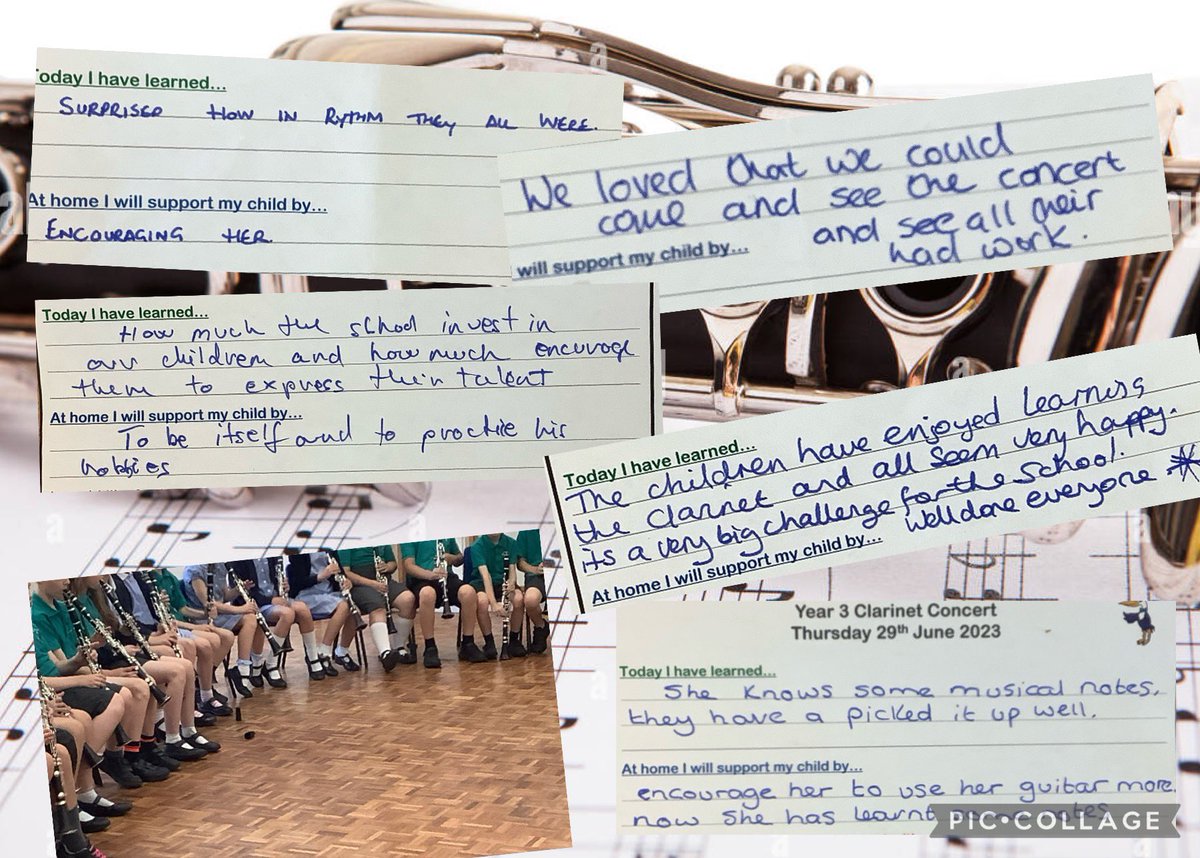 Today I have learned...
SURPRISED HOW IN RYTHM THEY ALL WERE.
At home I will support my child by...
ENCOURAGING HER.
We loved that we could
come and see the concert
and see all their
had work.
will support my child by...
Today I have learned...
How much the school invest in
our children and how much encurage
them to express their talent
At home I will support my child by...
To be itself and to practise his
hobbies
Today I have learned...
The children have enjoyed learning
the clarinet and all seem very happy.
its a very big challenge for the school.
well done everyone
At home I will support my child by...
Year 3 Clarinet Concert
Thursday 29th June 2023
Today I have learned...
She knows some musical notes,
they have a picked it up well.
At home I will support my child by...
encourage her to use her guitar more
now she has learnt notes
PIC•COLLAGE